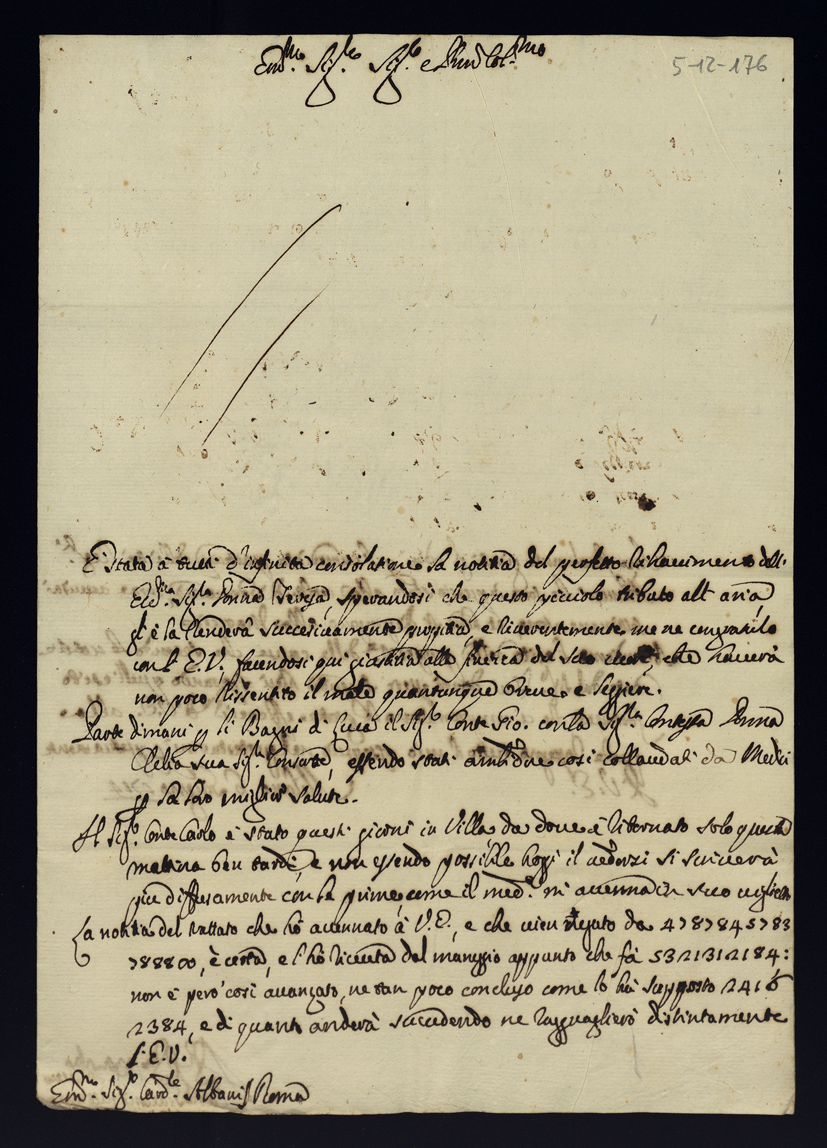 Em.mo Sig.re Sig.re e Pron Col.mo
5-12-176
È stata à tutti d'infinita consolatione la notitia del perfetto rihavimento dell'
Ecc.ma Sig.ra Donna Teresa, sperandosi che questo picciolo tributo all'aria
gl'e la renderà successivamente propitia, e riverentemente me ne congratulo
con l'E.V., facendosi qui giustitia alla finezza del suo che haverà
non poco risentito il male quantunque breve, e leggiere.
Parte dimani p li Bagni di Luca il Sig.r Conte Gio. con la Sig.ra Contessa Donna
Clelia sua Sig.ra Consorte, essendo stati ambidue così collaudati da Medici
p la loro miglior salute.
Il Sig.r Conte Carlo è stato questi giorni in Villa, da dove è ritornato solo questa
mattina ben tardi, e non essendo possibile hoggi il vedersi si scriverà
più diffusamente con la prima, come il med.o mi accenna in suo viglietto
La notitia del trattato che hò accennato à V.E., e che vien negato da 4787845783
788800, è certa, e l'hò ricevuta dal maneggio appunto che fà 5321312184:
non è però così avanzato, ne tan poco concluso come lo hà supposto 2416
2384, e di quanto anderà succedendo ne ragguaglierò distintamente
l'E.V.
Em.mo Sig.r Card.le Albani Roma